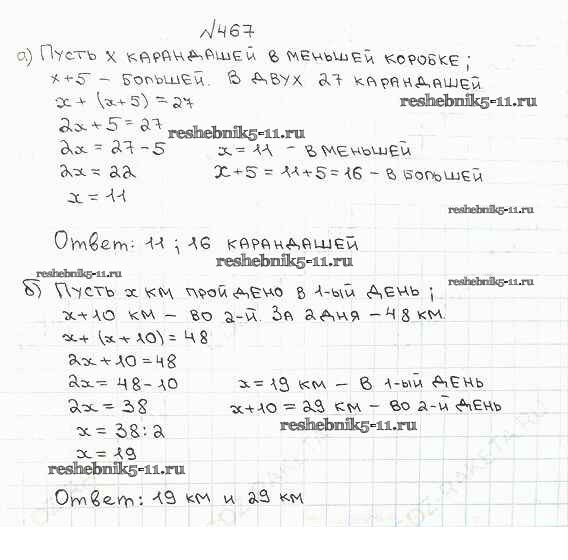 №467
а) Пусть х карандашей в меньшей коробке;
х+5 – большей. В двух 27 карандашей
х + (х+5) = 27
reshebnik5-11.ru
2х + 5 = 27
reshebnik5-11.ru
2х = 27 - 5 х = 11 – в меньшей
2х = 22 х+5 = 11+5 = 16 – в большей
х = 11
reshebnik5-11.ru
Ответ: 11 ; 16 карандашей
reshebnik5-11.ru
reshebnik5-11.ru
reshebnik5-11.ru
б) Пусть х км пройдено в 1-ый день;
х+10 км – во 2-й. За 2 дня – 48 км.
х + (х+10) = 48
2х + 10 = 48
2х = 48-10 х = 19 км – в 1-ый день
2х = 38 х+10 = 29 км – во 2-й день
х = 38:2
reshebnik5-11.ru
х = 19
reshebnik5-11.ru
Ответ: 19 км и 29 км